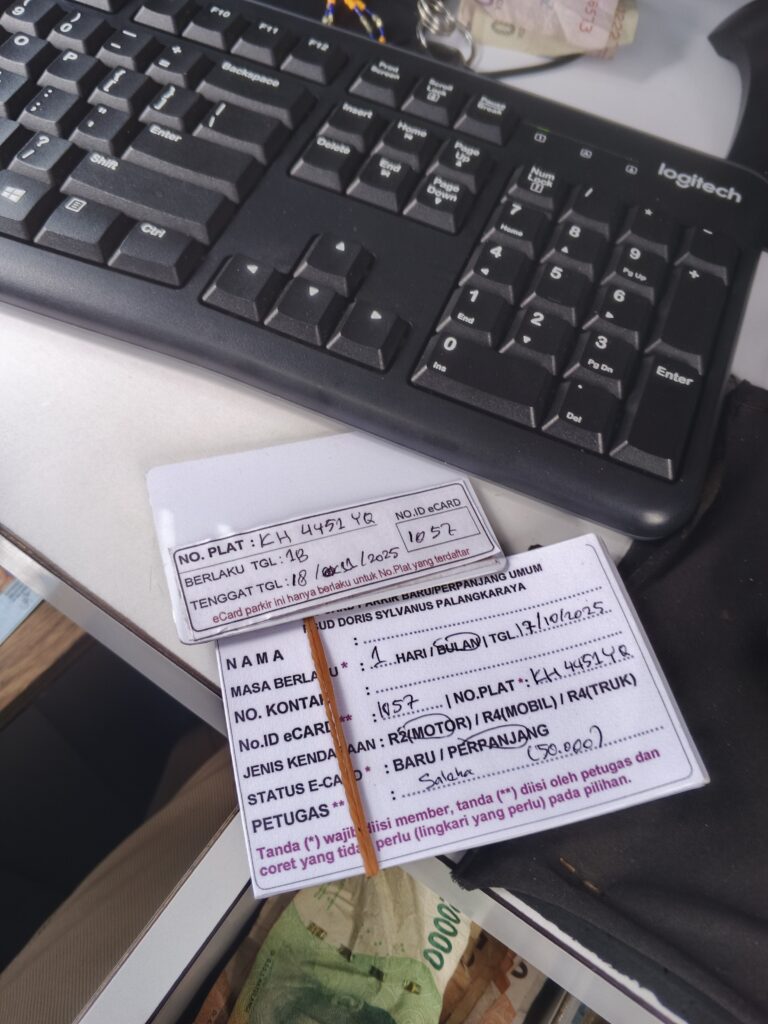 9 0 - = F10 F11 F12 Backspace
O P [ ] \
: ; " ' Enter
? Shift
Ctrl
Prnt Screen Scroll Lock Pause Break
Insert Home Page Up
Delete End Page Down
1 A
logitech
Num Lock / * -
7 Home 8 9 Pg Up +
4 5 6
1 End 2 3 Pg Dn Enter
0 Ins . Del
NO. PLAT : KH 4451 YQ
NO.ID eCARD
1057
BERLAKU TGL : 1B
TENGGAT TGL : 18 / 11 / 2025
eCard parkir ini hanya berlaku untuk No.Plat yang terdaftar
PARKIR BARU/PERPANJANG UMUM
RSUD DORIS SYLVANUS PALANGKARAYA
NAMA :
MASA BERLAKU * : 1 HARI / BULAN | TGL 17/10/2025
NO. KONTAK :
No.ID eCARD ** : 1057 | NO.PLAT * : KH 4451 YQ
JENIS KENDARAAN : R2(MOTOR) / R4(MOBIL) / R4(TRUK)
STATUS E-CARD * : BARU / PERPANJANG
PETUGAS ** : (50.000)
Tanda (*) wajib diisi member, tanda (**) diisi oleh petugas dan
coret yang tidak perlu (lingkari yang perlu) pada pilihan.